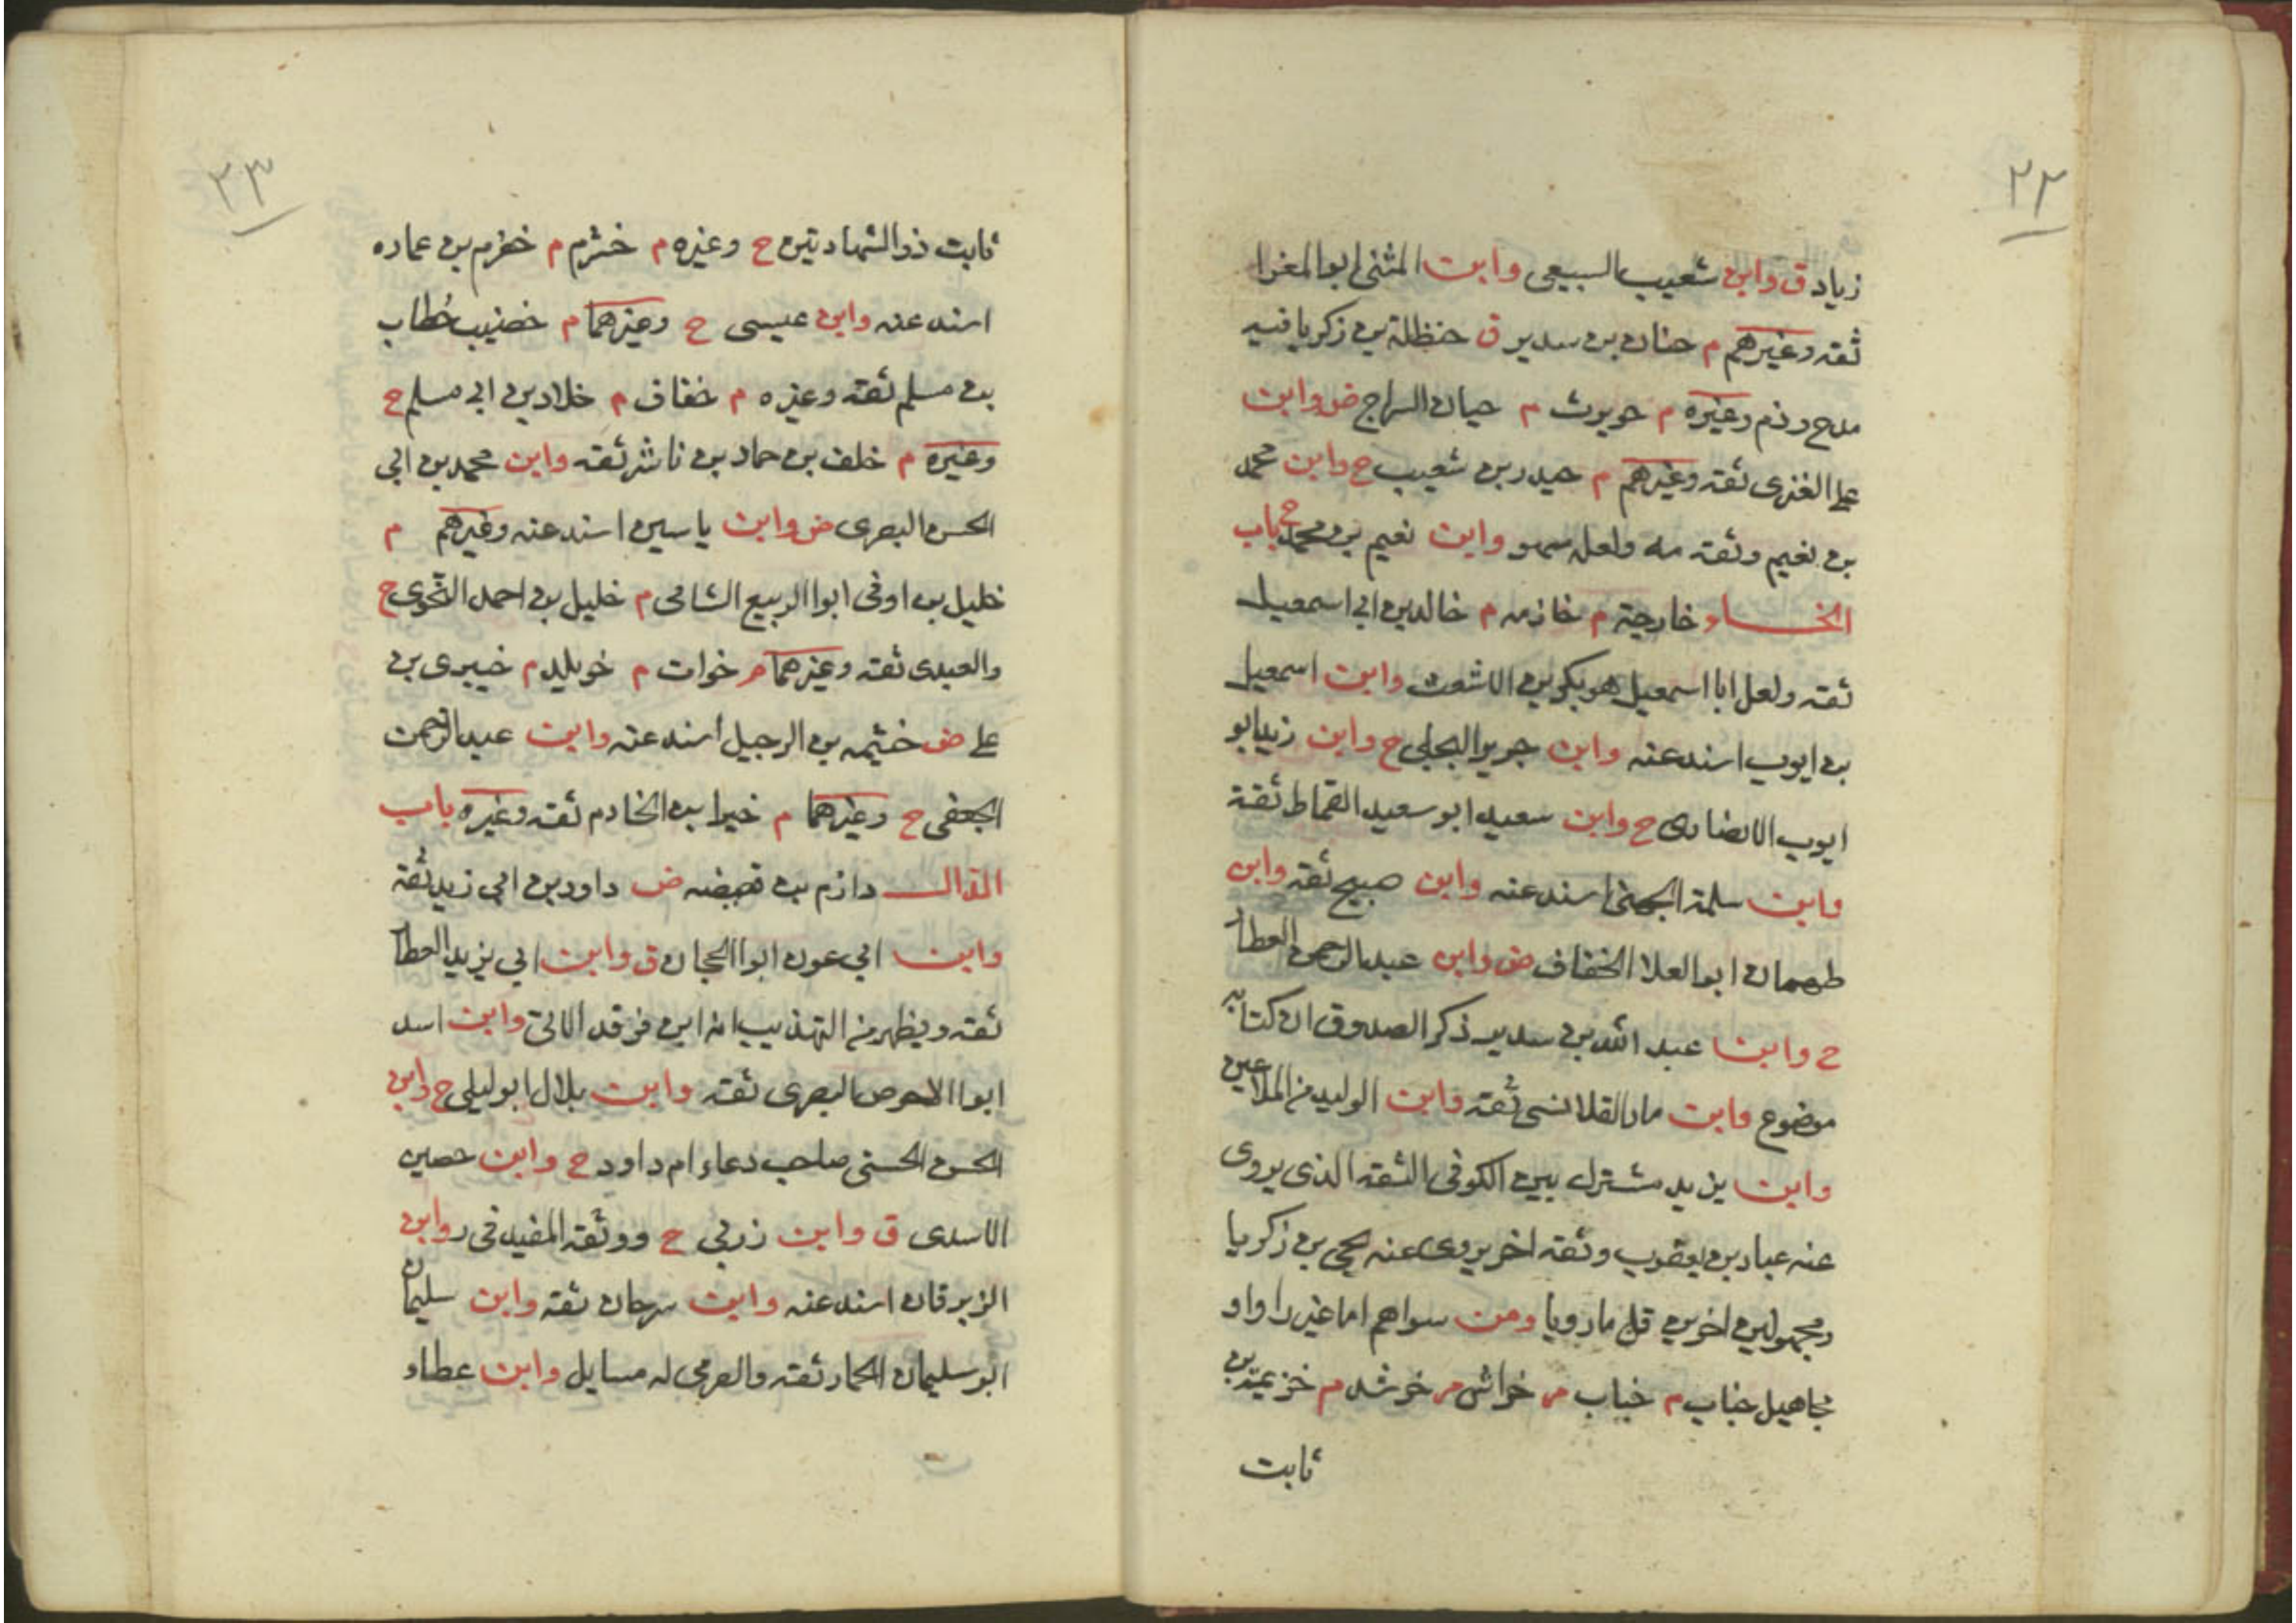 ٢٢
زياد ق وابن شعيب السبيعى وابن المثنى ابو المغرا
ثقة وغيرهم م حنان بن سدير ق حنظلة بن زكريا فيه
مدح وذم وغيره م حويرث م حيان السراج ض وابن
على العنزى ثقه وغيرهم م حيدر بن شعيب ح وابن محمد
بن نعيم وثقه مه ولعله سهو وابن نعيم بن محمد ح باب
الخاء خارجة م خازم م خالد بن ابى اسمعيل
ثقه ولعل ابا اسمعيل هو بكر بن الاشعث وابن اسمعيل
بن ايوب اسند عنه وابن جرير البجلى ح وابن زيد ابو
ايوب الانصارى ح وابن سعيد ابو سعيد القماط ثقة
وابن سلمة الجهنى اسند عنه وابن صبيح ثقه وابن
طهمان ابو العلا الخفاف ض وابن عبد الرحمن العطار
ح وابن عبد الله بن سدير ذكر الصدوق ان كتابه
موضوع وابن ماد القلانسى ثقه وابن الوليد من الملاعين
وابن يزيد مشترك بين الكوفى الثقه الذى يروى
عنه عباد بن يعقوب وثقه اخر يروى عنه يحيى بن زكريا
ومجهولين اخرين قل ما رويا ومن سواهم اما غير راو او
مجاهيل خباب م خباب م خراش م خرشد م خزيمة بن
ثابت
٢٣
ثابت ذو الشهادتين ح وغيره م خشرم م خضرم بن عماره
اسند عنه وابن عيسى ح وغيرهما م خضيب خطاب
بن مسلم ثقه وغيره م خفاف م خلاد بن ابى مسلم ح
وغيره م خلف بن حماد بن ناشر ثقه وابن محمد بن ابى
الحسن البصرى ض وابن ياسين اسند عنه وغيرهم م
خليل بن اوفى ابو الربيع الشامى م خليل بن احمد النحوى ح
والعبدى ثقه وغيرهما م خوات م خويلد م خيبرى بن
على ض خثيمه بن الرجيل اسند عنه وابن عبد الرحمن
الجعفى ح وغيرهما م خيران الخادم ثقه وغيره باب
الدال دازم بن قبيضه ض داود بن ابى زيد ثقة
وابن ابى عون ابو الحجان ق وابن ابى يزيد العطار
ثقه ويظهر من التهذيب انه ابن فرقد الاتى وابن اسد
ابو الاحوص البصرى ثقه وابن بلال ابو ليلى ح وابن
الحسن الحسنى صاحب دعاء ام داود ح وابن حصين
الاسدى ق وابن زربى ح ووثقه المفيد فى ر وابن
الزبرقان اسند عنه وابن سرحان ثقه وابن سليمان
ابو سليمان الحمار ثقه والصرمى له مسايل وابن عطاء